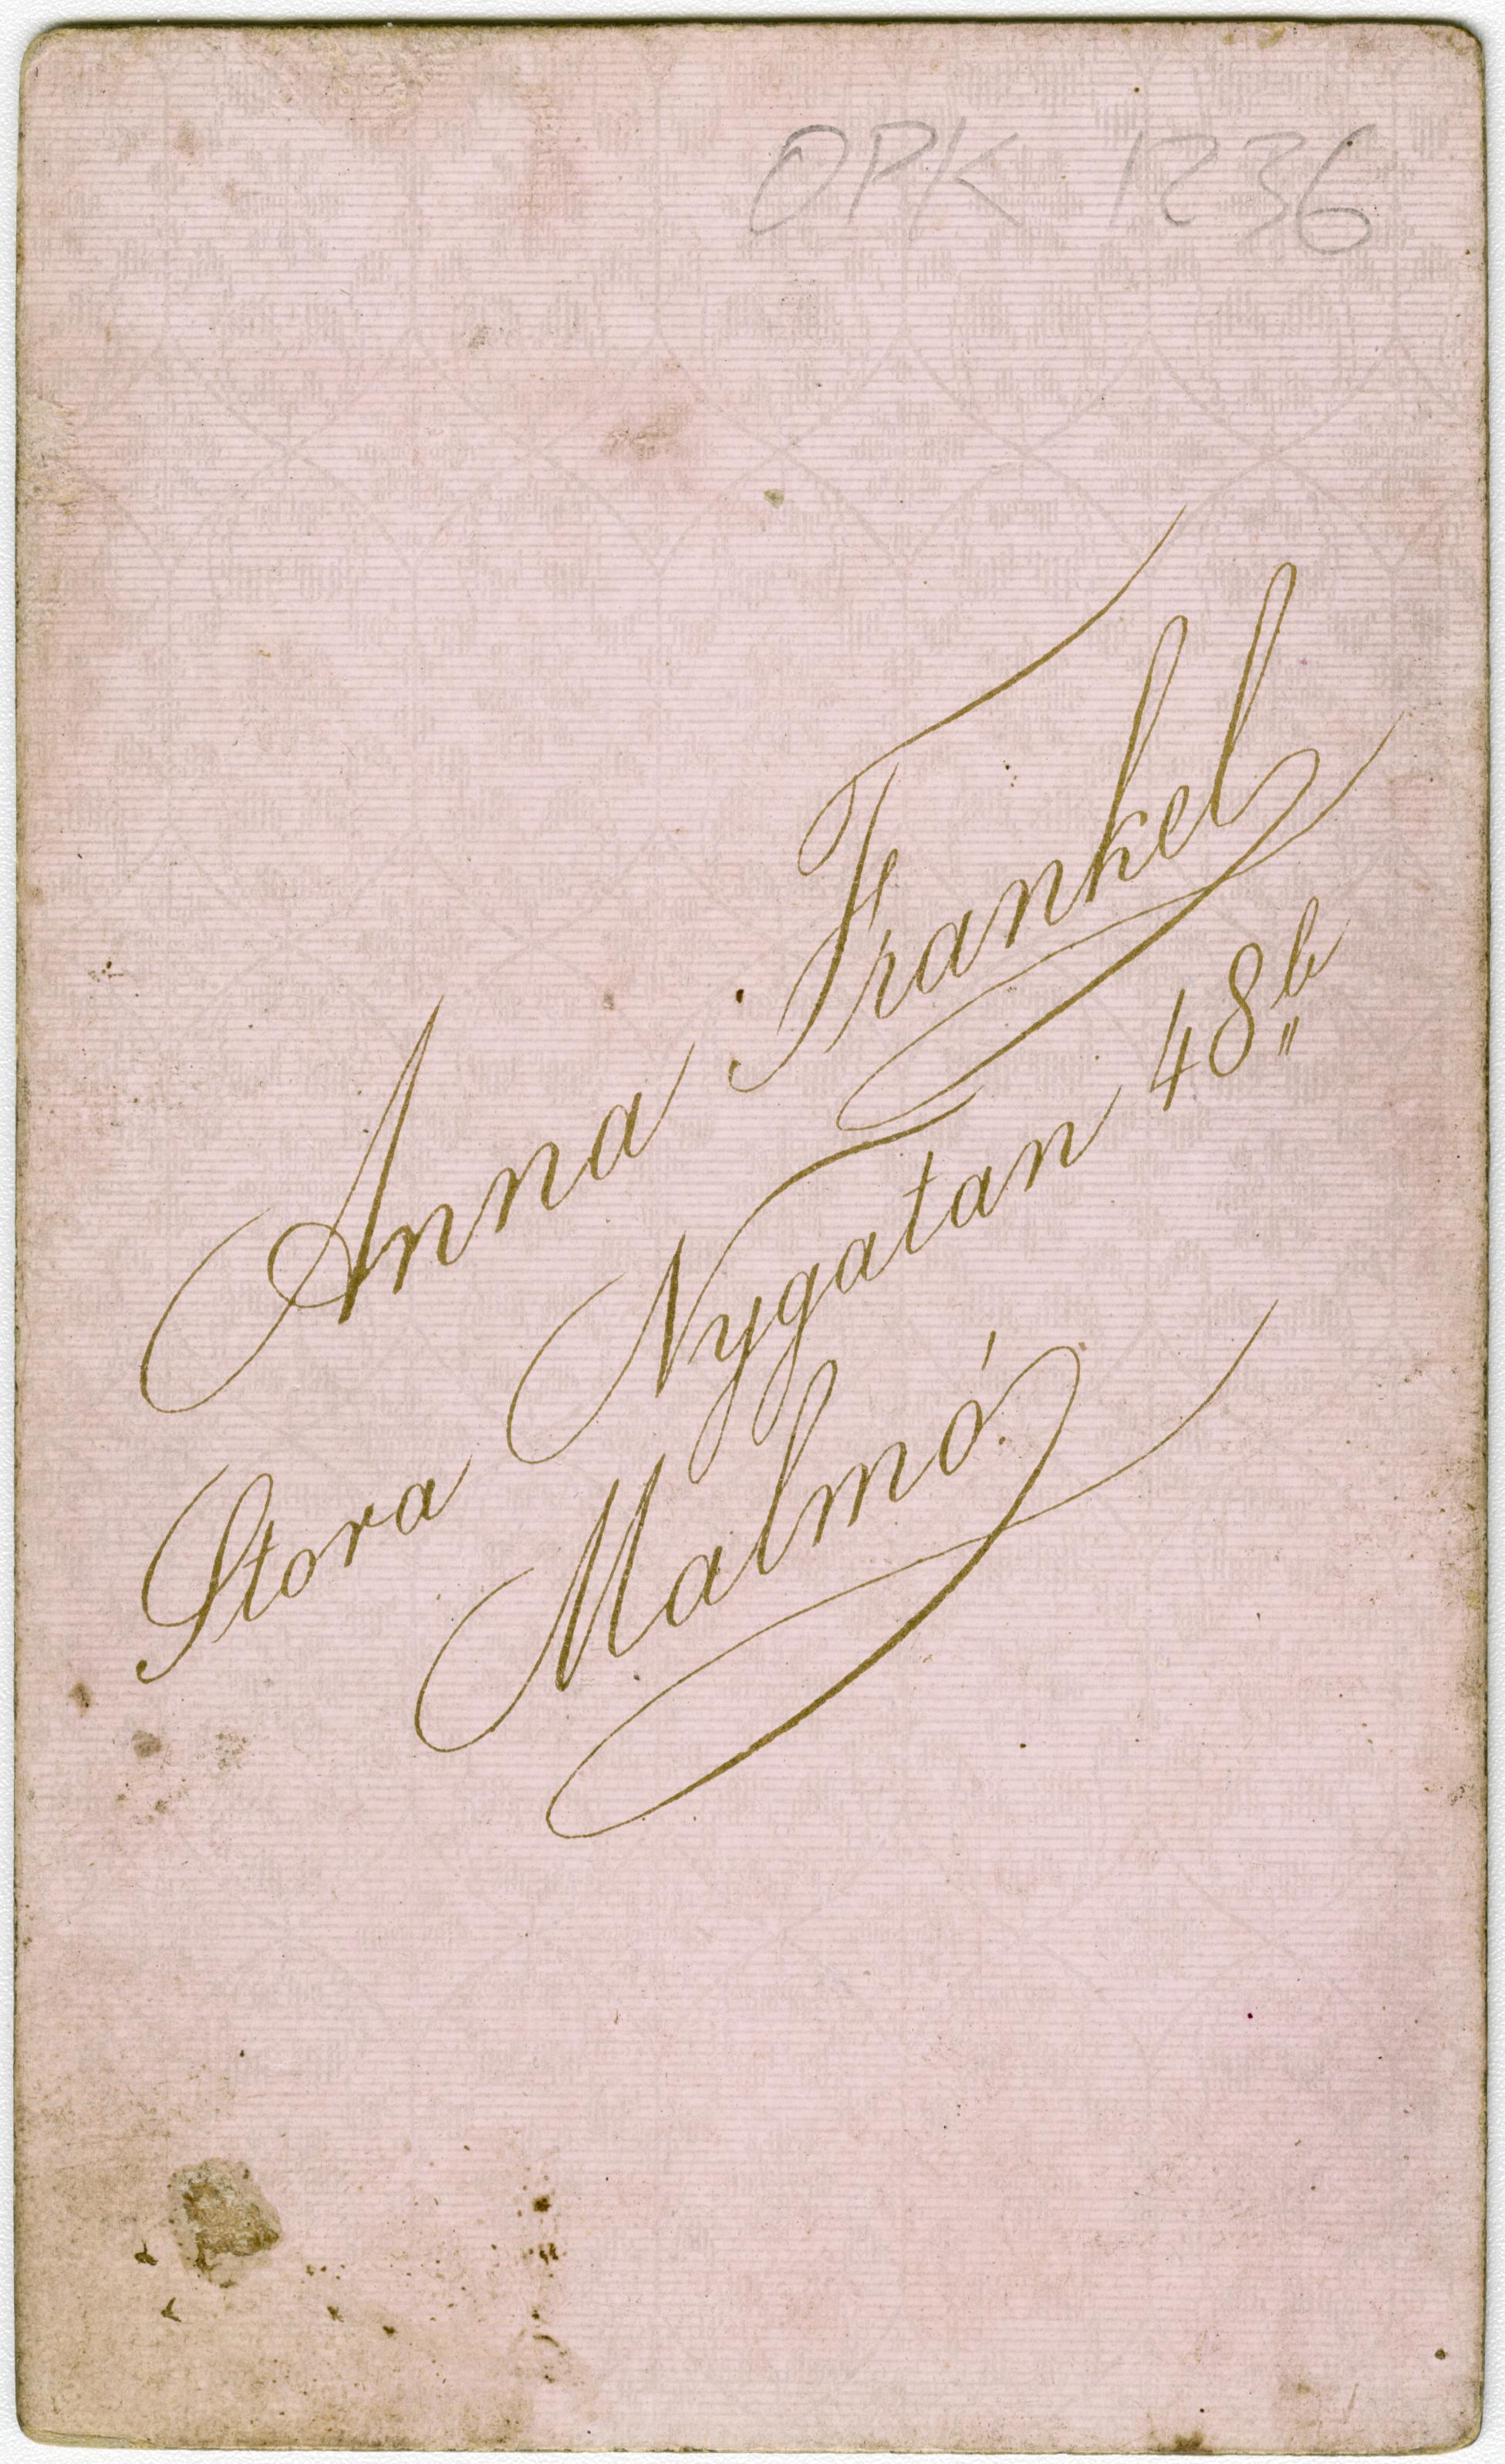 OPK 1236
Anna Frankel
Stora Nygatan 48b
Malmó.